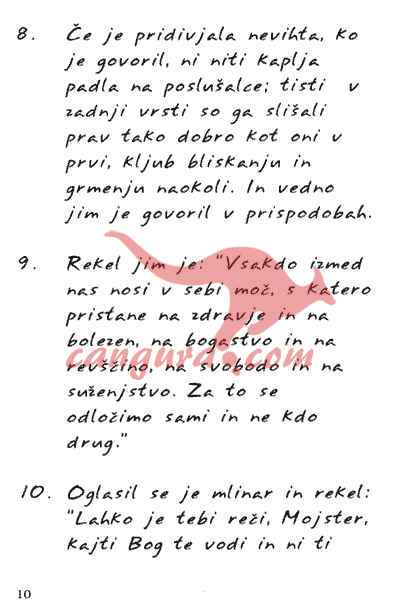 8. Če je pridivjala nevihta, ko
je govoril, ni niti kaplja
padla na poslušalce; tisti v
zadnji vrsti so ga slišali
prav tako dobro kot oni v
prvi, kljub bliskanju in
grmenju naokoli. In vedno
jim je govoril v prispodobah.
9. Rekel jim je: "Vsakdo izmed
nas nosi v sebi moč, s katero
pristane na zdravje in na
bolezen, na bogastvo in na
revščino, na svobodo in na
suženjstvo. Za to se
odločimo sami in ne kdo
drug."
cangura.com
10. Oglasil se je mlinar in rekel:
"Lahko je tebi reči, Mojster,
kajti Bog te vodi in ni ti
10